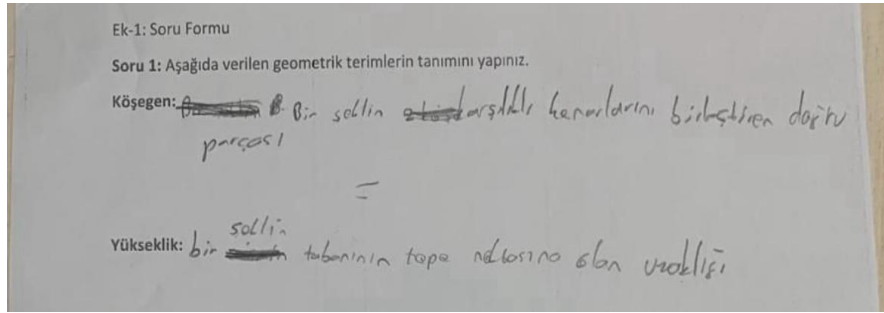 Ek-1: Soru Formu
Soru 1: Aşağıda verilen geometrik terimlerin tanımını yapınız.
Köşegen: B. Bir şeklin karşılıklı kenarlarını birleştiren doğru
parçası
şeklin
Yükseklik: bir tabanının tepe noktasına olan uzaklığı